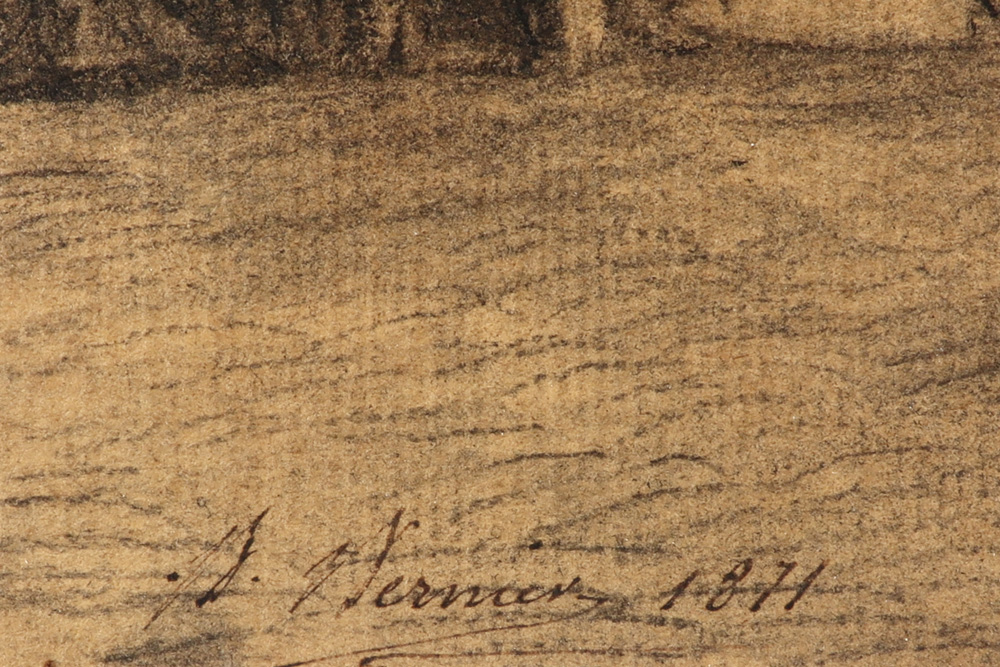 A. Vernier 1871